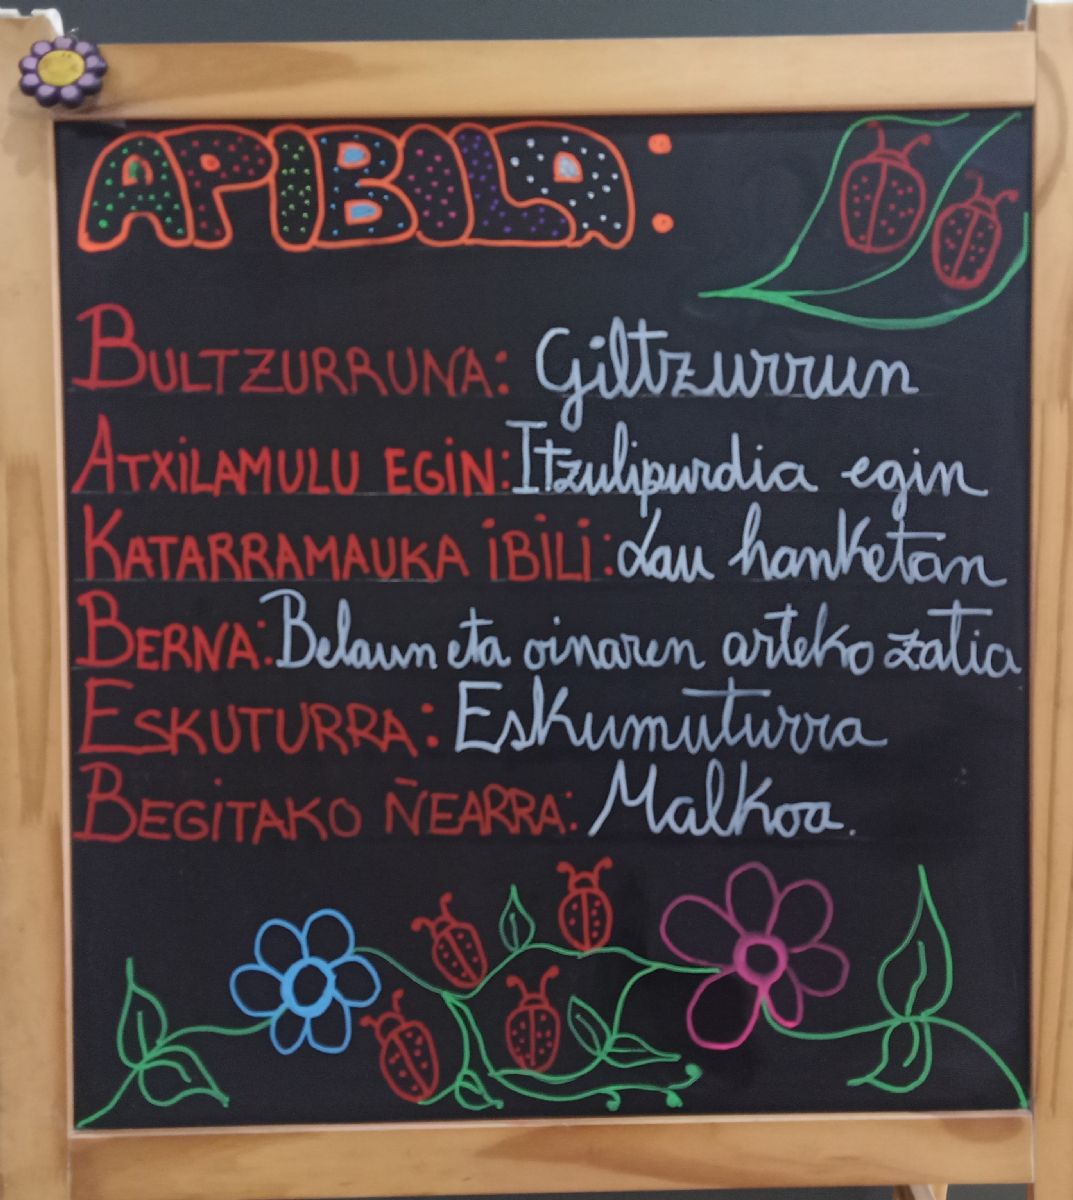 APIBILA:
BULTZURRUNA: Giltzurrun
ATXILAMULU EGIN: Itzulipurdia egin
KATARRAMAUKA IBILI: Lau hanketan
BERNA: Belaun eta oinaren arteko zatia
ESKUTURRA: Eskumuturra
BEGITAKO ÑEARRA: Malkoa.